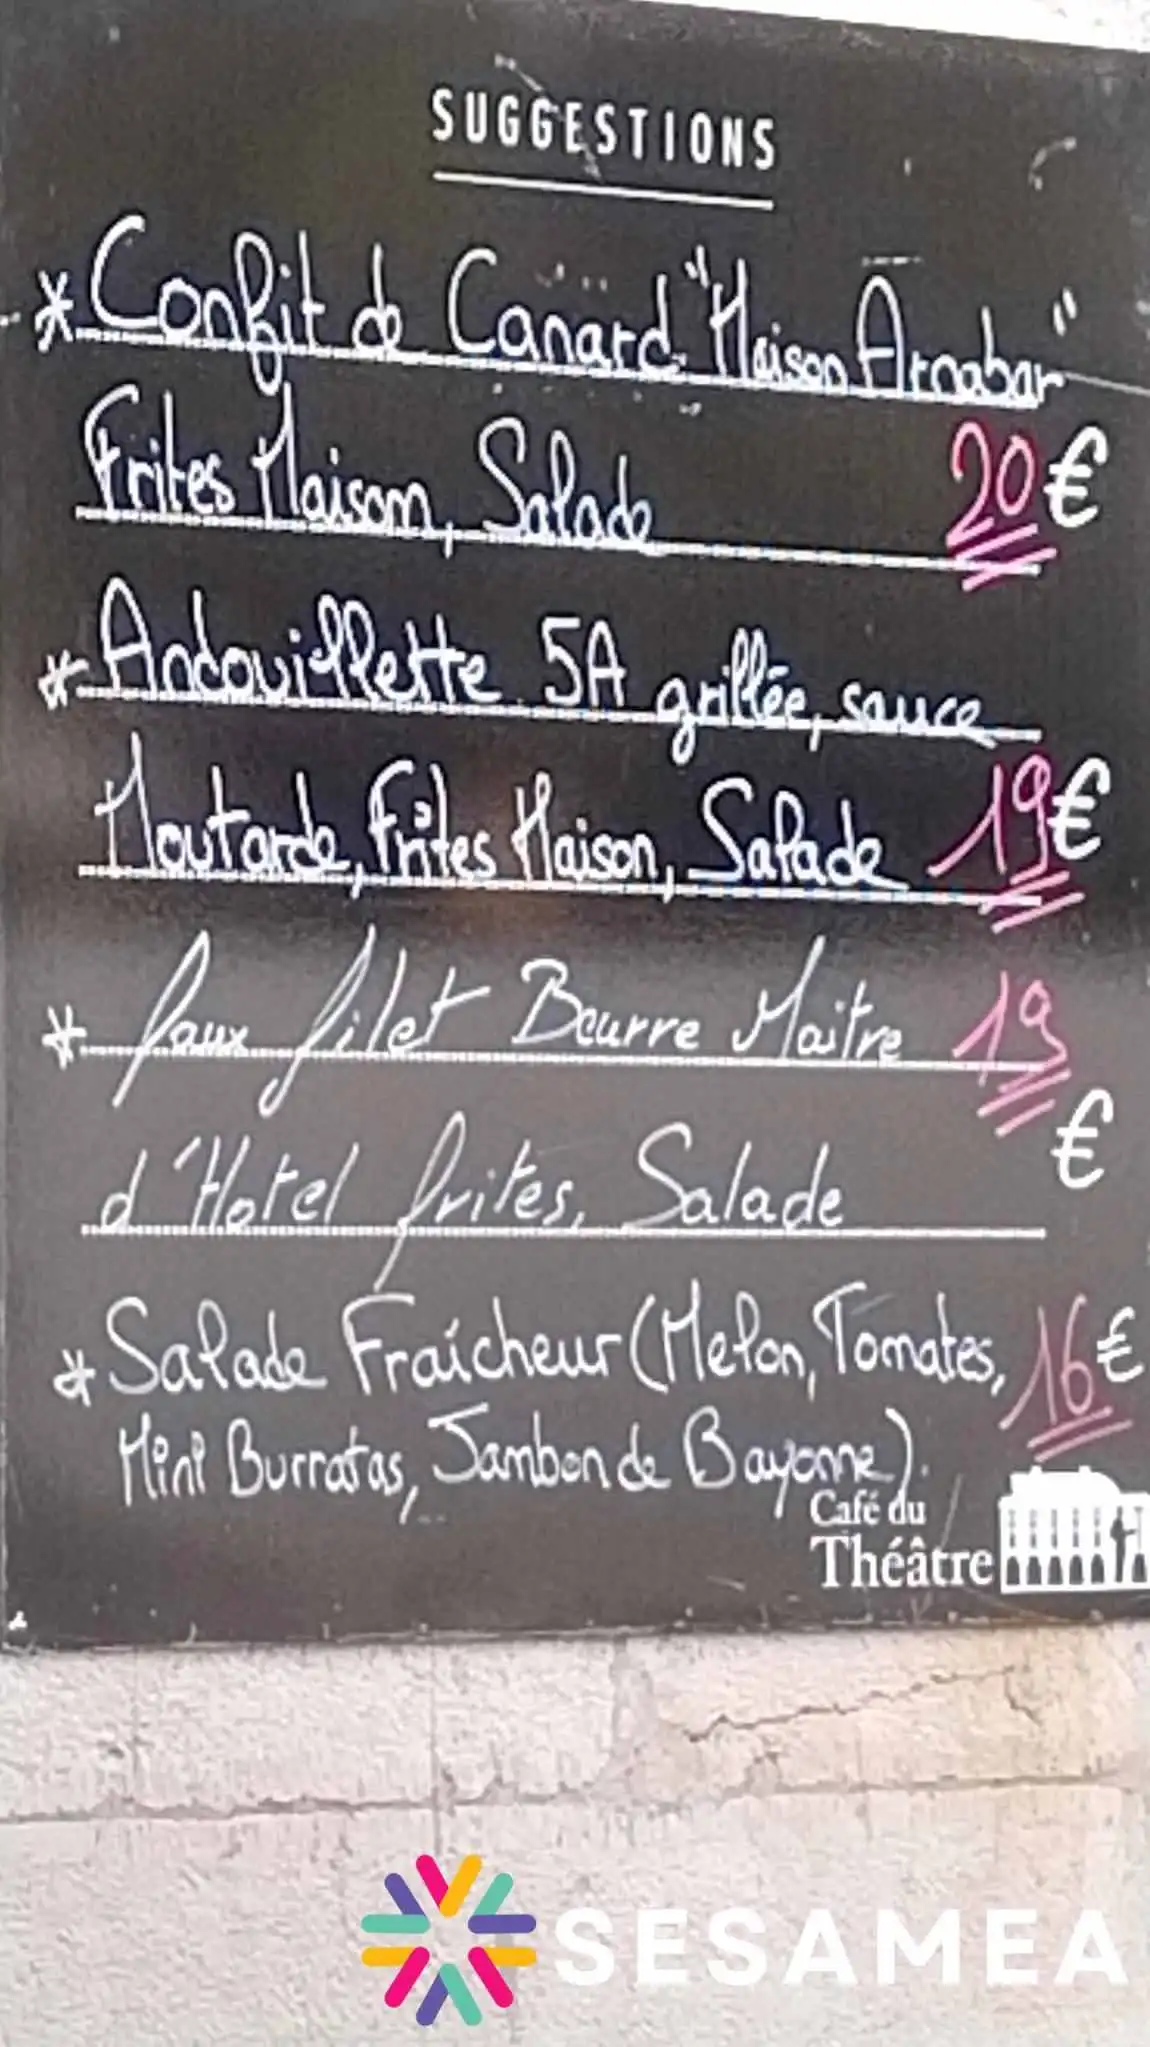 SUGGESTIONS
* Confit de Canard "Maison Arnabar"
Frites Maison, Salade 20 €
* Andouillette 5A grillée, sauce
Moutarde, Frites Maison, Salade 19 €
* faux filet Beurre Maitre 19
€
d'Hotel frites, Salade
* Salade Fraîcheur (Melon, Tomates, 16 €
Mini Burratas, Jambon de Bayonne).
Café du
Théâtre
SESAMEA